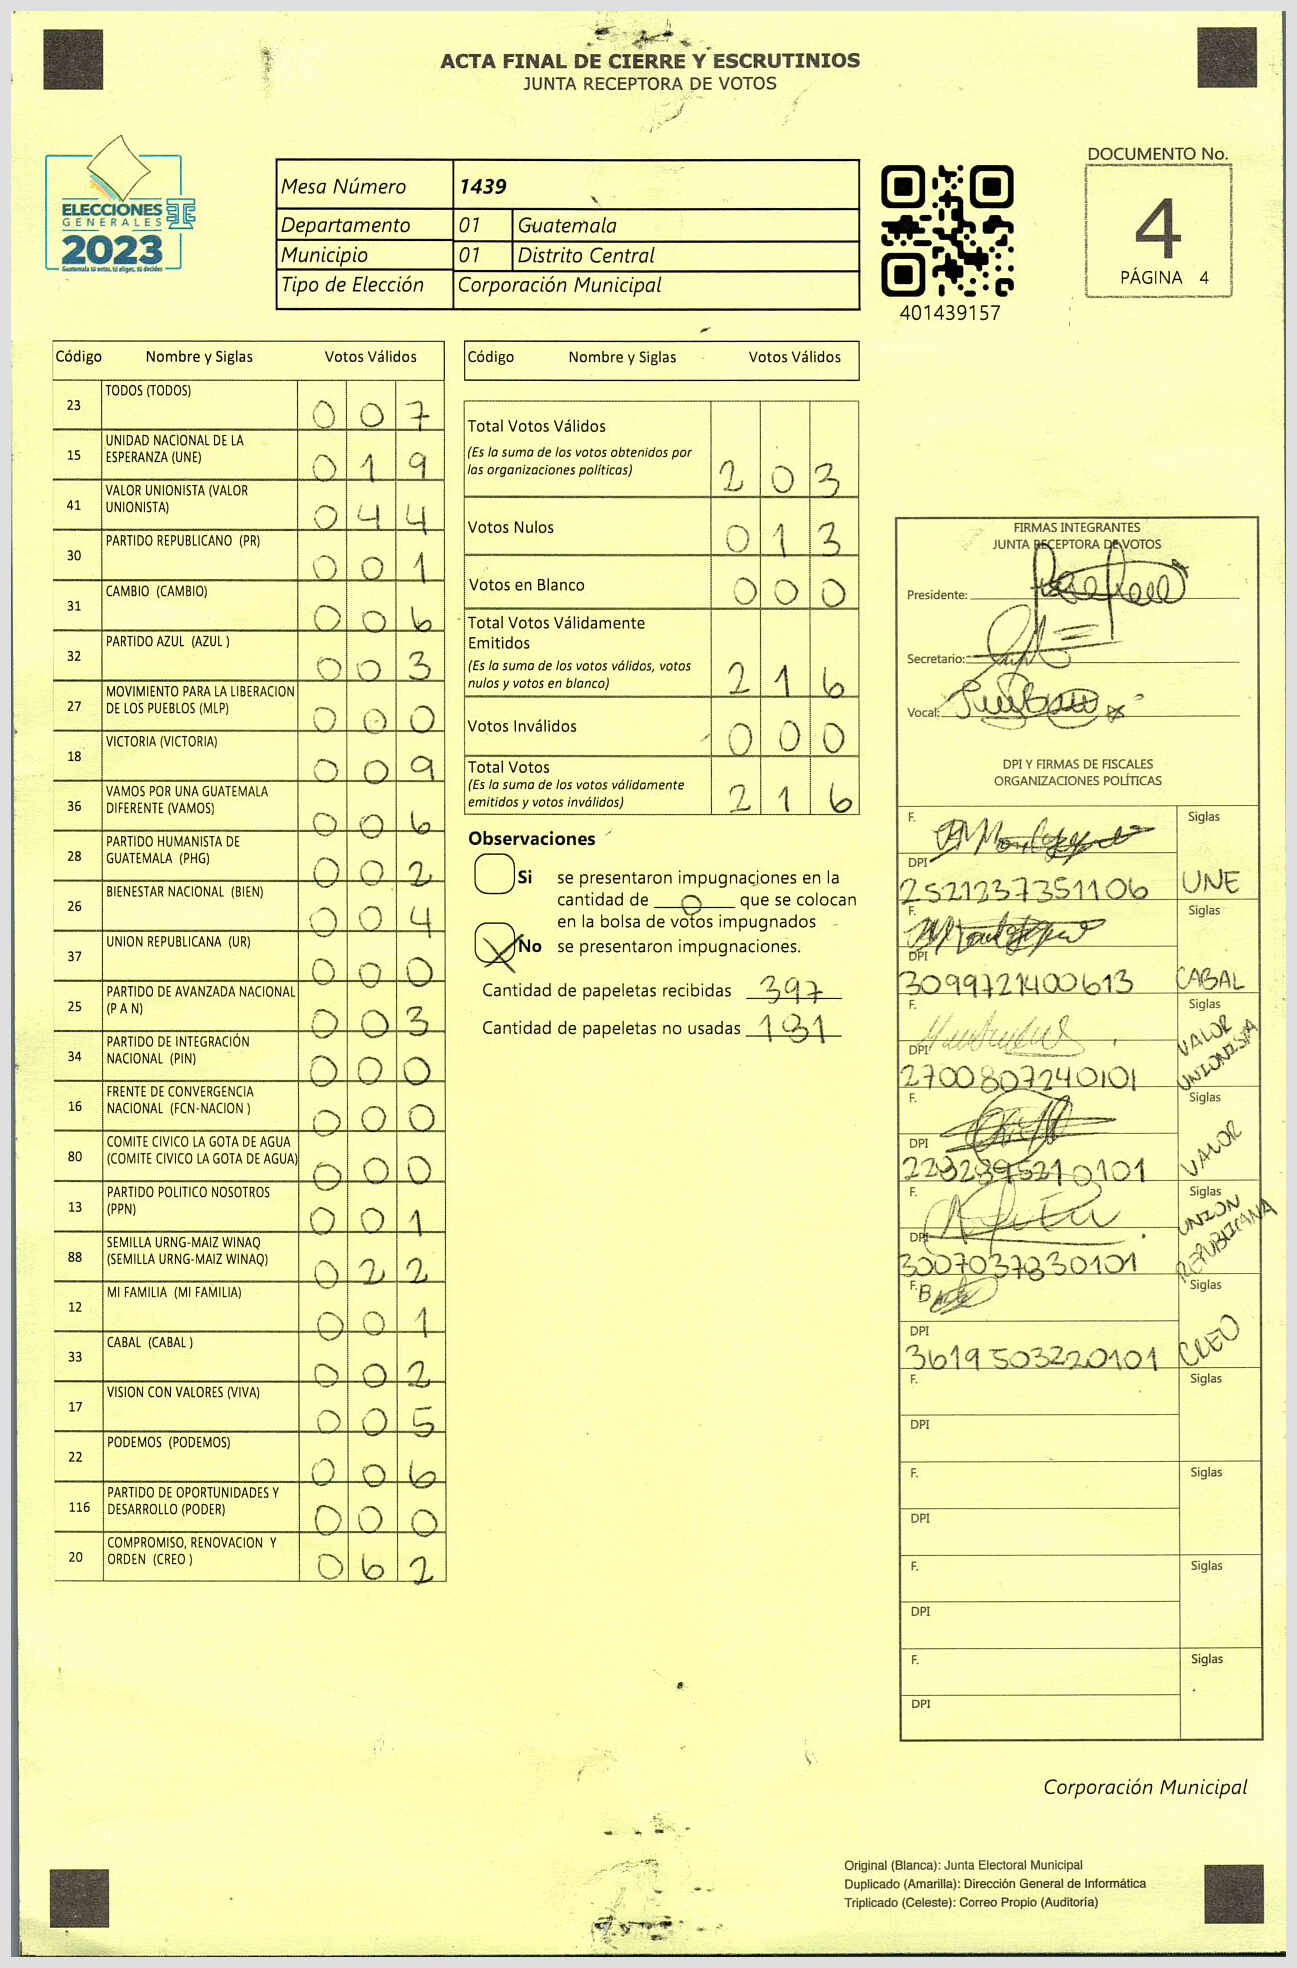 ACTA FINAL DE CIERRE Y ESCRUTINIOS
JUNTA RECEPTORA DE VOTOS
ELECCIONES
GENERALES
2023
Guatemala tú votas, tú eliges, tú decides
Mesa Número 1439
Departamento 01 Guatemala
Municipio 01 Distrito Central
Tipo de Elección Corporación Municipal
401439157
DOCUMENTO No.
4
PÁGINA 4
Código Nombre y Siglas Votos Válidos
23 TODOS (TODOS) 0 0 7
15 UNIDAD NACIONAL DE LA
ESPERANZA (UNE) 0 1 9
41 VALOR UNIONISTA (VALOR
UNIONISTA) 0 4 4
30 PARTIDO REPUBLICANO (PR) 0 0 1
31 CAMBIO (CAMBIO) 0 0 6
32 PARTIDO AZUL (AZUL ) 0 0 3
27 MOVIMIENTO PARA LA LIBERACION
DE LOS PUEBLOS (MLP) 0 0 0
18 VICTORIA (VICTORIA) 0 0 9
36 VAMOS POR UNA GUATEMALA
DIFERENTE (VAMOS) 0 0 6
28 PARTIDO HUMANISTA DE
GUATEMALA (PHG) 0 0 2
26 BIENESTAR NACIONAL (BIEN) 0 0 4
37 UNION REPUBLICANA (UR) 0 0 0
25 PARTIDO DE AVANZADA NACIONAL
(P A N) 0 0 3
34 PARTIDO DE INTEGRACIÓN
NACIONAL (PIN) 0 0 0
16 FRENTE DE CONVERGENCIA
NACIONAL (FCN-NACION ) 0 0 0
80 COMITE CIVICO LA GOTA DE AGUA
(COMITE CIVICO LA GOTA DE AGUA) 0 0 0
13 PARTIDO POLITICO NOSOTROS
(PPN) 0 0 1
88 SEMILLA URNG-MAIZ WINAQ
(SEMILLA URNG-MAIZ WINAQ) 0 2 2
12 MI FAMILIA (MI FAMILIA) 0 0 1
33 CABAL (CABAL ) 0 0 2
17 VISION CON VALORES (VIVA) 0 0 5
22 PODEMOS (PODEMOS) 0 0 6
116 PARTIDO DE OPORTUNIDADES Y
DESARROLLO (PODER) 0 0 0
20 COMPROMISO, RENOVACION Y
ORDEN (CREO ) 0 6 2
Código Nombre y Siglas Votos Válidos
Total Votos Válidos
(Es la suma de los votos obtenidos por
las organizaciones políticas) 2 0 3
Votos Nulos 0 1 3
Votos en Blanco 0 0 0
Total Votos Válidamente
Emitidos
(Es la suma de los votos válidos, votos
nulos y votos en blanco) 2 1 6
Votos Inválidos 0 0 0
Total Votos
(Es la suma de los votos válidamente
emitidos y votos inválidos) 2 1 6
Observaciones
Si se presentaron impugnaciones en la
cantidad de 0 que se colocan
en la bolsa de votos impugnados
X No se presentaron impugnaciones.
Cantidad de papeletas recibidas 397
Cantidad de papeletas no usadas 181
FIRMAS INTEGRANTES
JUNTA RECEPTORA DE VOTOS
Presidente:
Secretario:
Vocal:
DPI Y FIRMAS DE FISCALES
ORGANIZACIONES POLÍTICAS
F. Siglas
DPI
2521237351106 UNE
F. Siglas
DPI
3099721400613 CABAL
F. Siglas
DPI VALOR
2700807240101 UNIONISTA
F. Siglas
DPI
2232395210101 VALOR
F. Siglas
DPI UNION
3007037830101 REPUBLICANA
F. Siglas
DPI
3619503220101 CREO
F. Siglas
DPI
F. Siglas
DPI
F. Siglas
DPI
F. Siglas
DPI
Corporación Municipal
Original (Blanca): Junta Electoral Municipal
Duplicado (Amarilla): Dirección General de Informática
Triplicado (Celeste): Correo Propio (Auditoría)